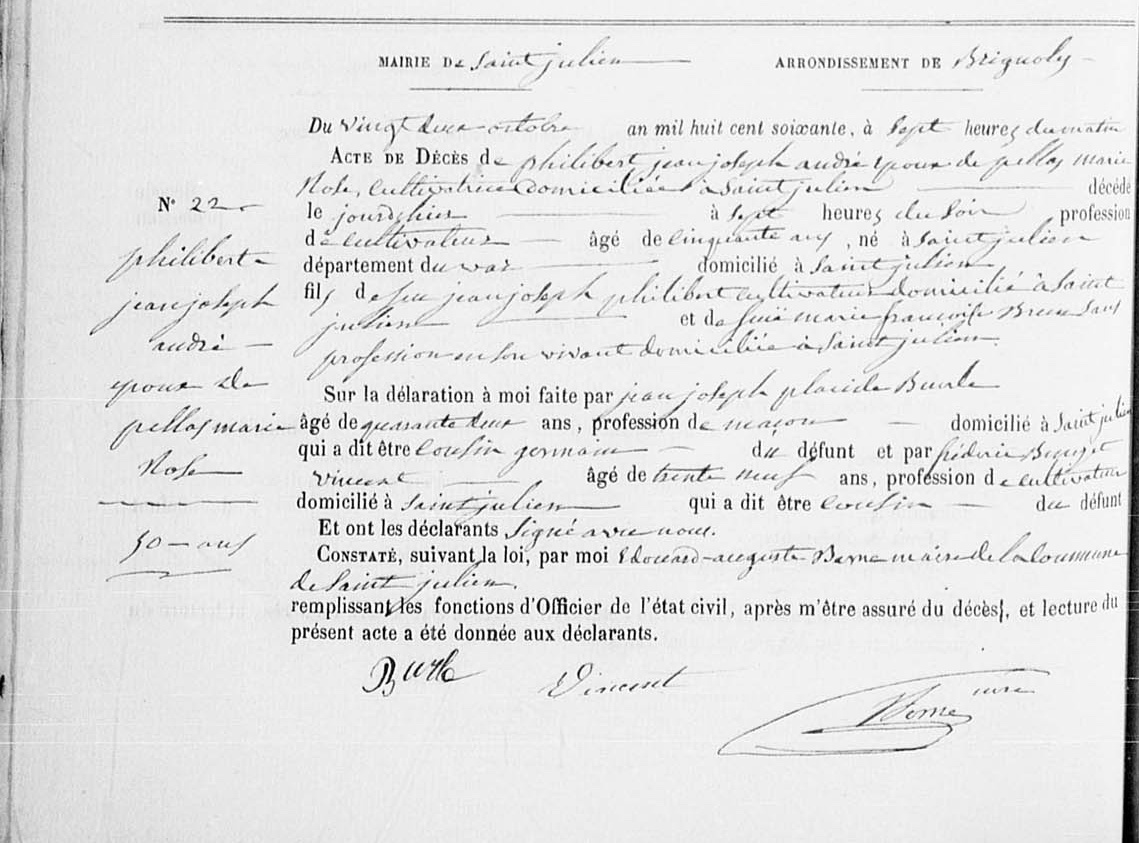 MAIRIE De Saint julien ARRONDISSEMENT DE Brignoles
Du vingt deux octobre an mil huit cent soixante, à sept heures du matin
ACTE DE DÉCÈS de philibert jean joseph andré epoux de pellas marie
Rose, cultivatrice domiciliée à Saint julien décédé
N° 22
le jour d'hier à sept heures du Soir profession
de cultivateur âgé de cinquante ans, né à Saint julien
département du var domicilié à Saint julien
fils de feu jean joseph philibert cultivateur domicilié à Saint
julien et de feuë marie françoise Sans
profession en son vivant domiciliée à Saint julien.
philibert
jean joseph
andré
epoux de
pellas marie
Rose
50 ans
Sur la délaration à moi faite par jean joseph placide Burle
âgé de quarante deux ans, profession de maçon domicilié à Saint julien
qui a dit être cousin germain du défunt et par fréderic
vincent âgé de trente neuf ans, profession de cultivateur
domicilié à Saint julien qui a dit être cousin du défunt
Et ont les déclarants Signé avec nous.
CONSTATÉ, suivant la loi, par moi Edouard-auguste Berne maire de la Commune
de Saint julien.
remplissant les fonctions d'Officier de l'état civil, après m'être assuré du décès, et lecture du
présent acte a été donnée aux déclarants.
Burle Vincent Berne